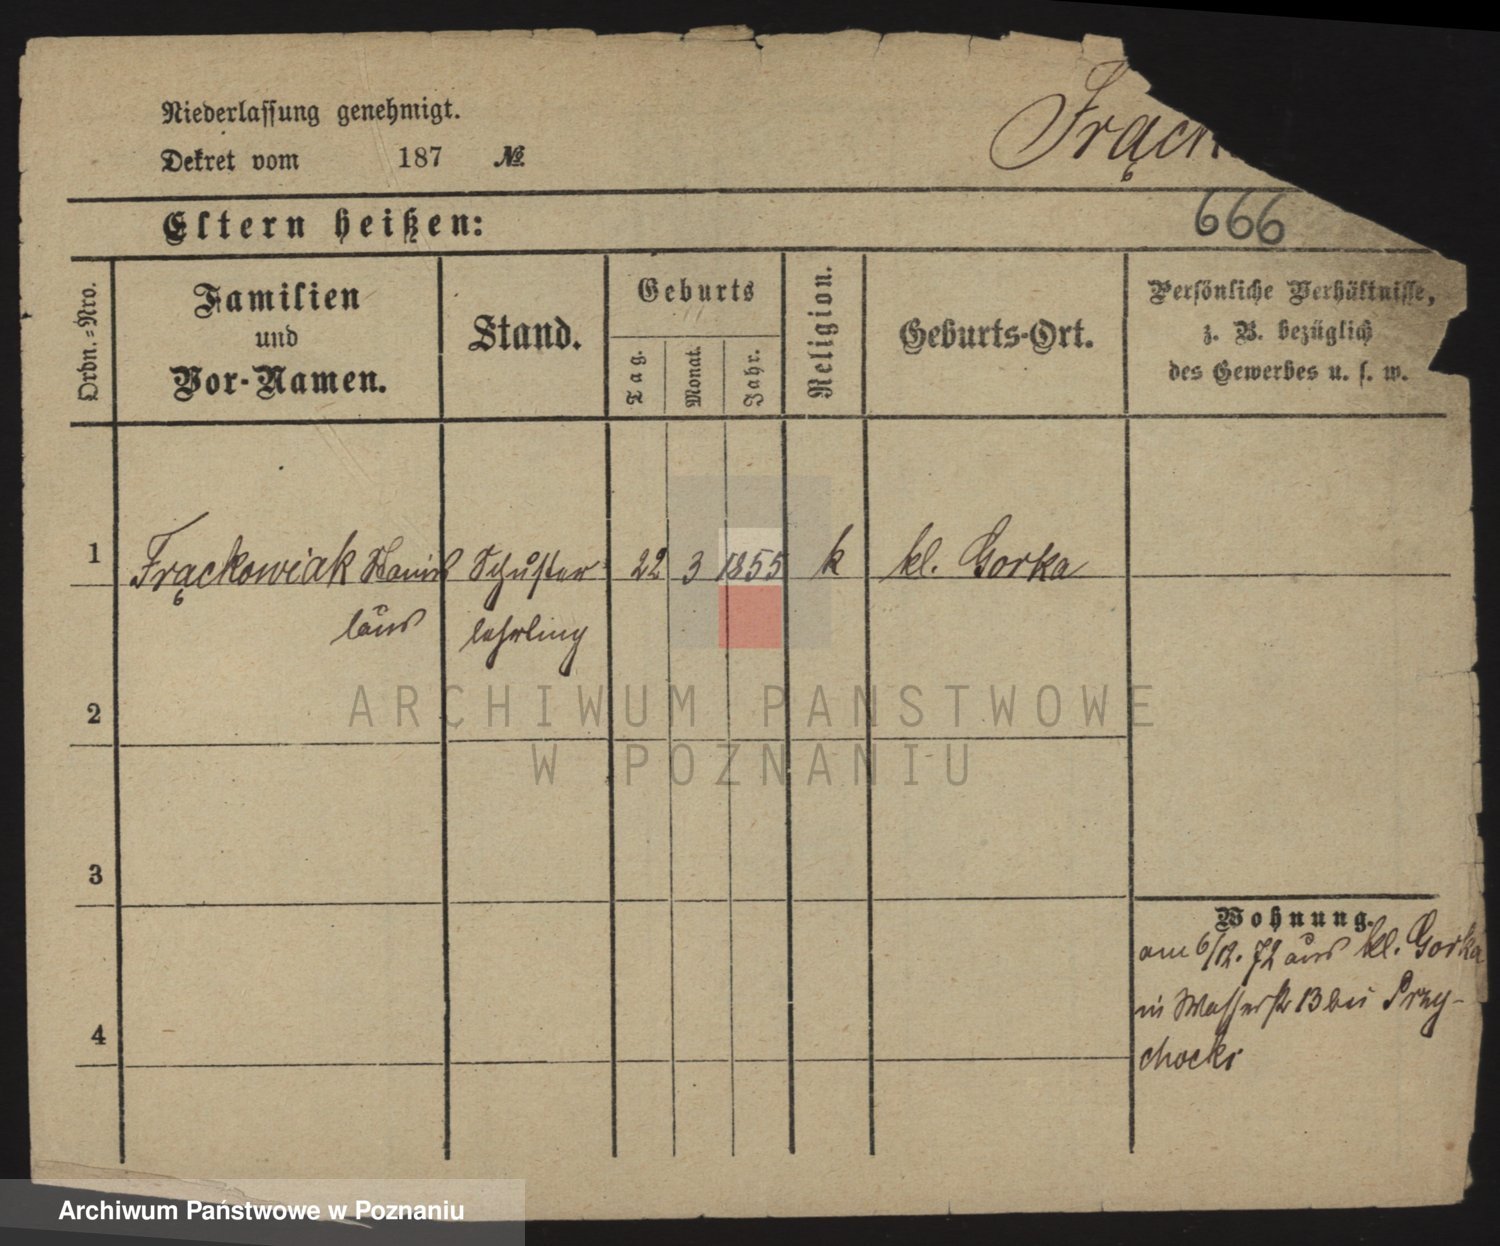 Niederlassung genehmigt.
Dekret vom 187 №
Frąck
666
Eltern heißen:
Ordn.-Nro.
Familien
und
Vor-Namen.
Stand.
Geburts
Tag.
Monat.
Jahr.
Religion.
Geburts-Ort.
Persönliche Verhältnisse,
z. B. bezüglich
des Gewerbes u. s. w.
1 Frąckowiak Stanis Schuster 22 3 1855 k kl. Gorka
laus lehrling
2
3
4
Wohnung.
am 6/12. 72 aus kl. Gorka
in Wasserstr 13 bei Przy-
chocki
ARCHIWUM PANSTWOWE
W POZNANIU
Archiwum Państwowe w Poznaniu